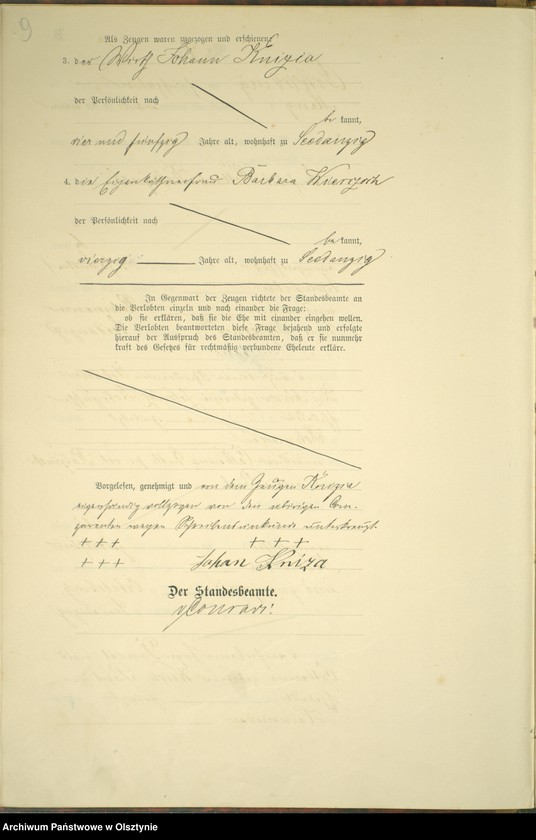 9
Als Zeugen waren zugezogen und erschienen:
3. der Wirth Johann Knizia
der Persönlichkeit nach
be kannt,
vier und fünfzig Jahre alt, wohnhaft zu Seedanzig
4. die Eigenkäthnerfrau Barbara
der Persönlichkeit nach
be kannt,
vierzig Jahre alt, wohnhaft zu Seedanzig
In Gegenwart der Zeugen richtete der Standesbeamte an
die Verlobten einzeln und nach einander die Frage:
ob sie erklären, daß sie die Ehe mit einander eingehen wollen.
Die Verlobten beantworteten diese Frage bejahend und erfolgte
hierauf der Ausspruch des Standesbeamten, daß er sie nunmehr
kraft des Gesetzes für rechtmäßig verbundene Eheleute erkläre.
Vorgelesen, genehmigt und von dem Zeugen Knizia
eigenhändig vollzogen von den übrigen Com-
parenten wegen Schreibensunkunde unterkreuzt
+++ +++
+++ Johan Kniza
Der Standesbeamte.
Conradi.
Archiwum Państwowe w Olsztynie